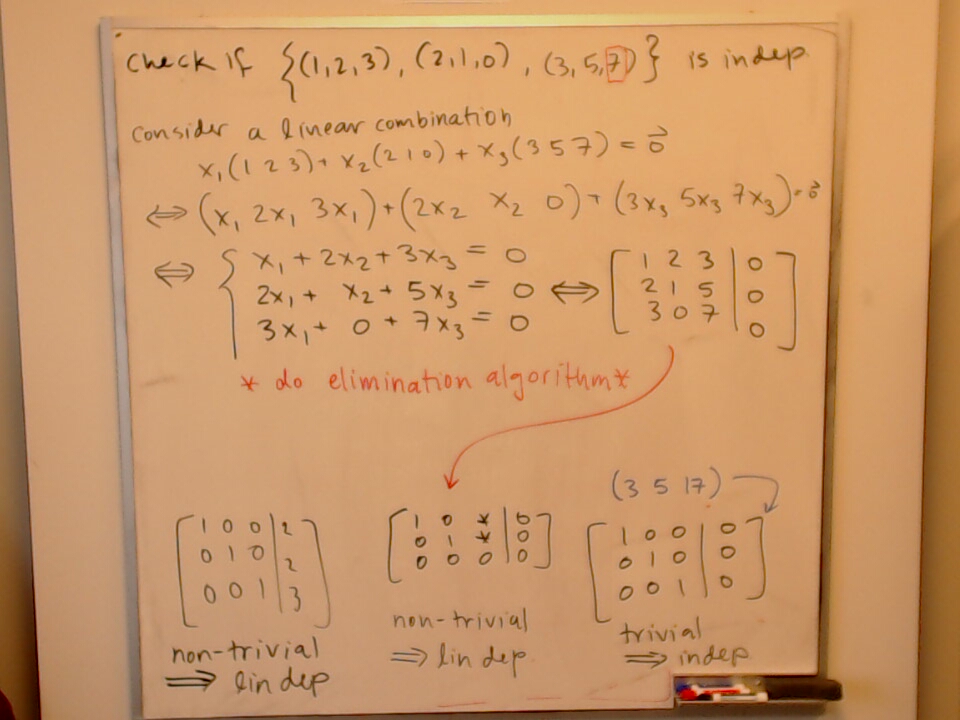 check if {(1,2,3), (2,1,0), (3,5,7)} is indep
consider a linear combination
x₁(1 2 3) + x₂(2 1 0) + x₃(3 5 7) = 0⃗
⟺ (x₁ 2x₁ 3x₁) + (2x₂ x₂ 0) + (3x₃ 5x₃ 7x₃) = 0⃗
⟺ { x₁ + 2x₂ + 3x₃ = 0
2x₁ + x₂ + 5x₃ = 0
3x₁ + 0 + 7x₃ = 0
⟺ [ 1 2 3 | 0
2 1 5 | 0
3 0 7 | 0 ]
* do elimination algorithm *
[ 1 0 0 | 2
0 1 0 | 2
0 0 1 | 3 ]
non-trivial
⟹ lin dep
[ 1 0 * | 0
0 1 * | 0
0 0 0 | 0 ]
non-trivial
⟹ lin dep
(3 5 17)
[ 1 0 0 | 0
0 1 0 | 0
0 0 1 | 0 ]
trivial
⟹ indep